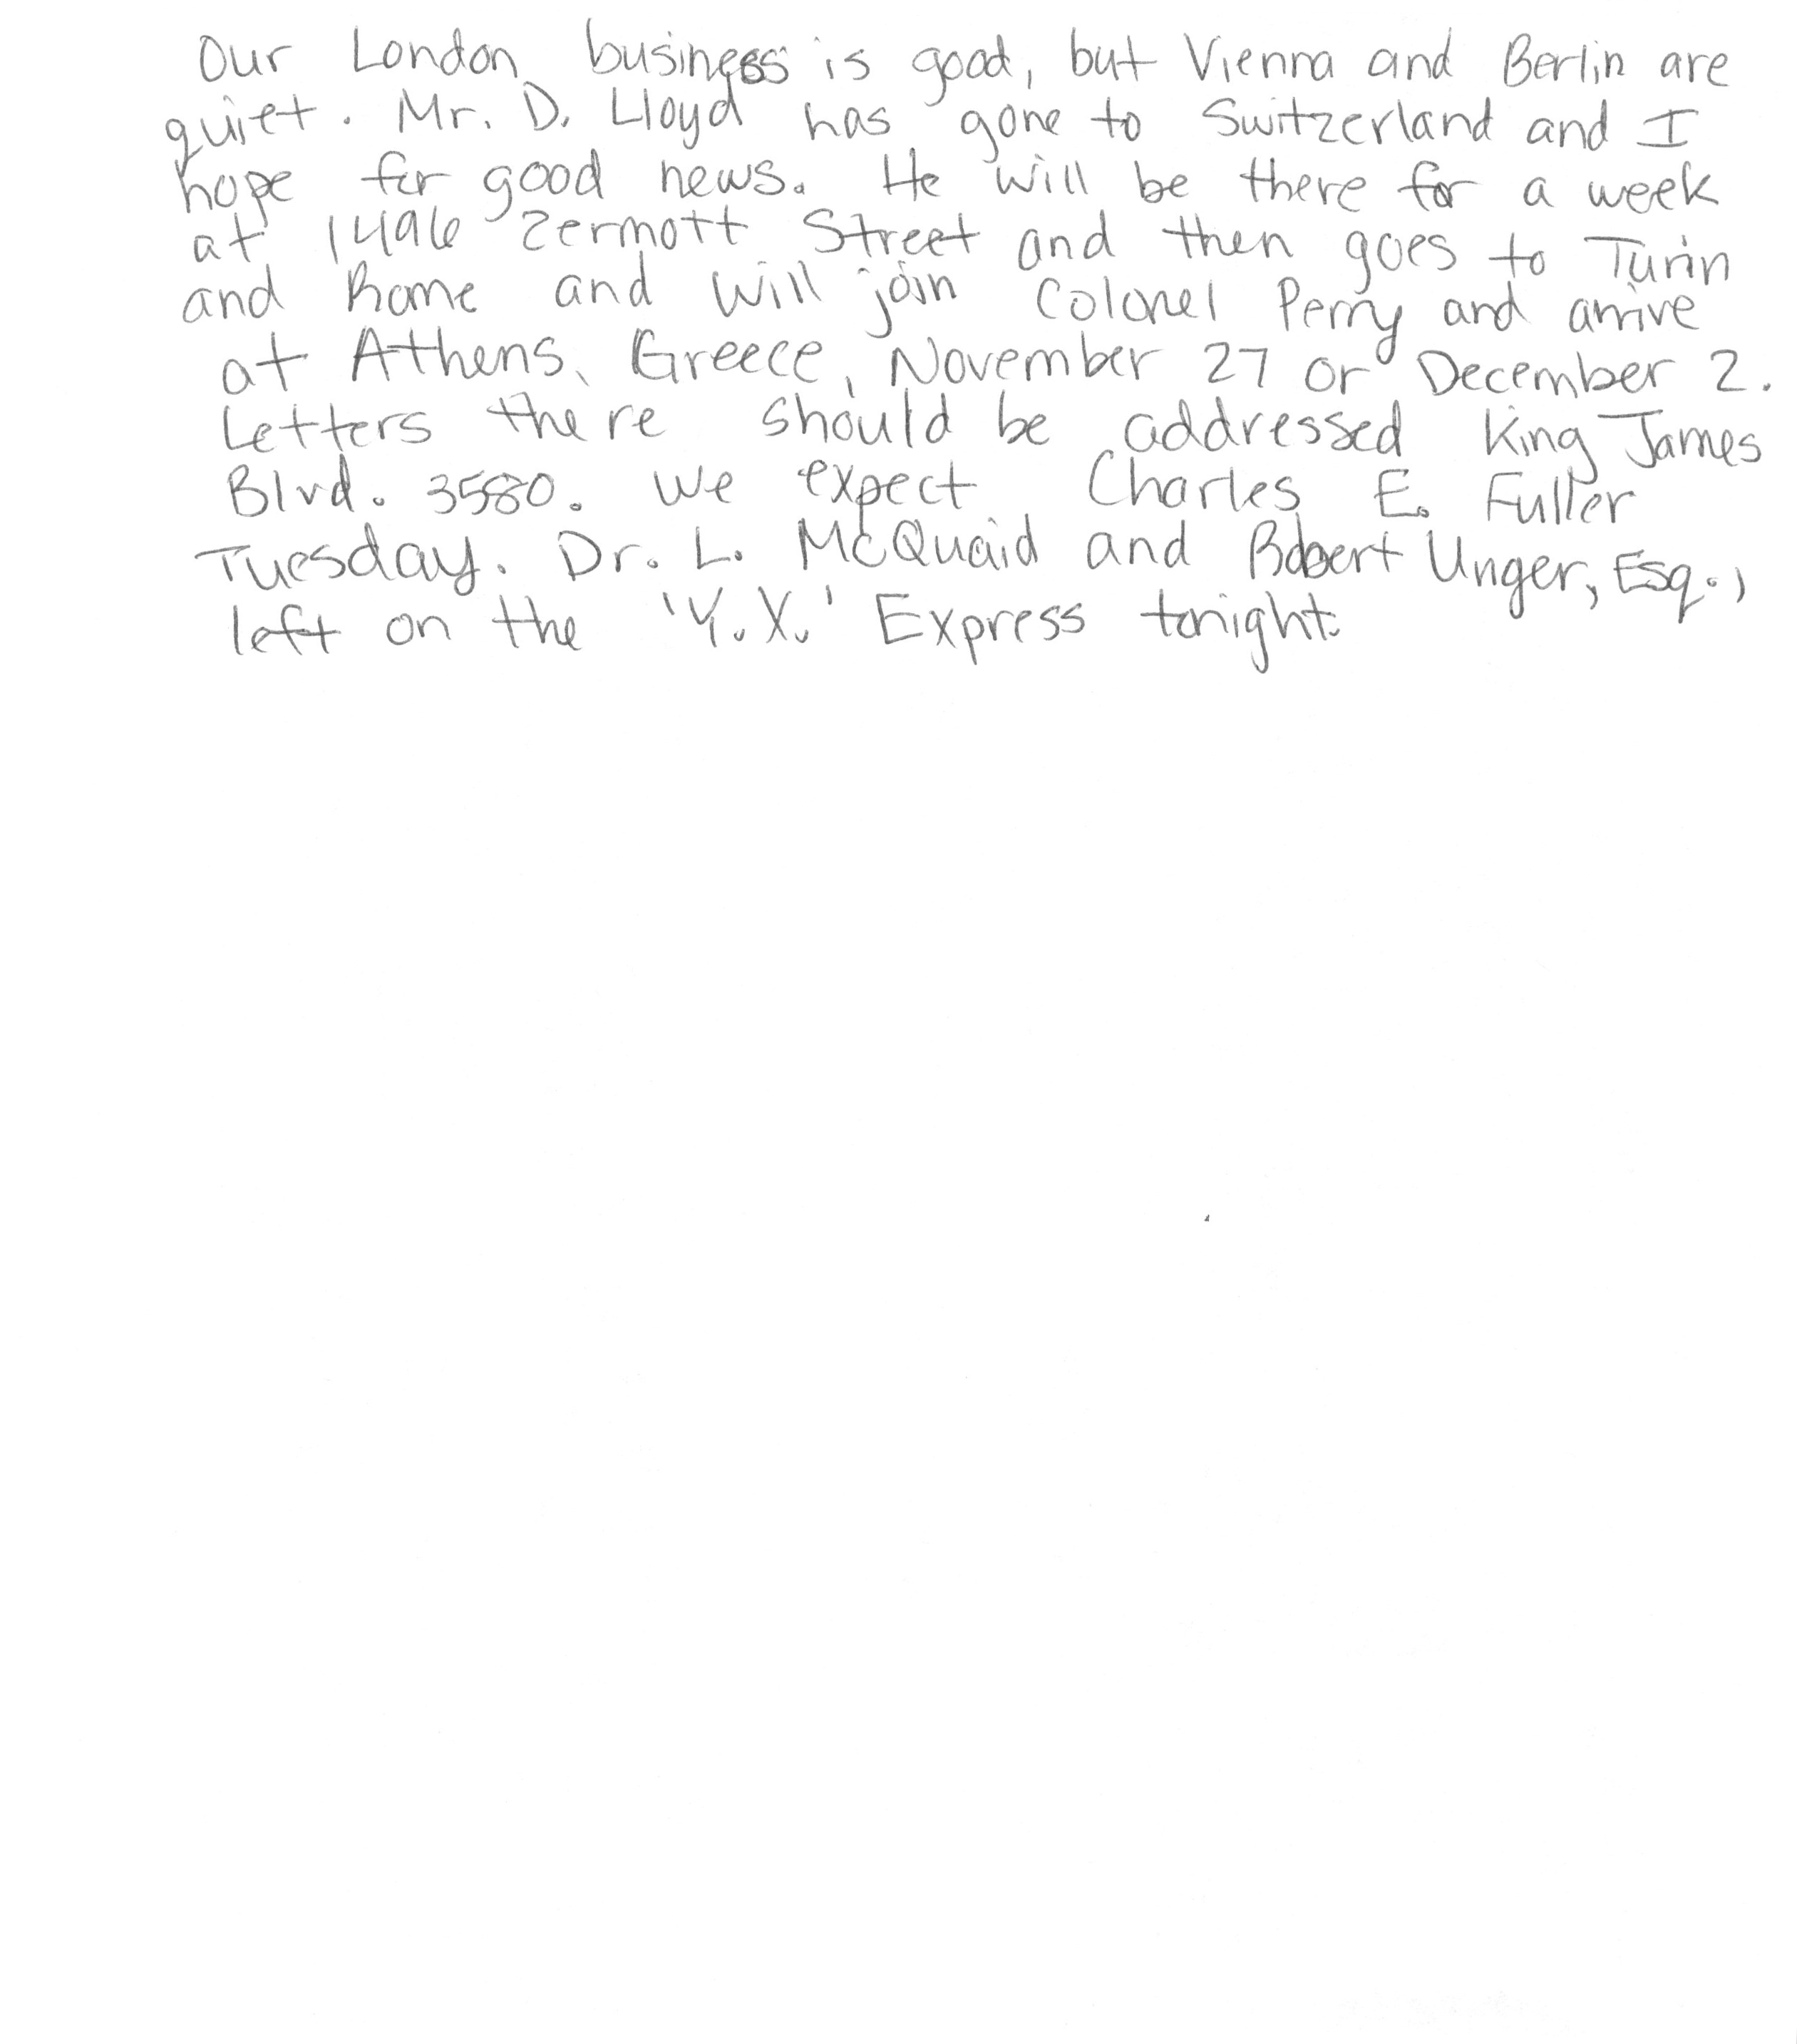 Our London business is good, but Vienna and Berlin are
quiet. Mr. D. Lloyd has gone to Switzerland and I
hope for good news. He will be there for a week
at 1496 Zermott Street and then goes to Turin
and Rome and will join Colonel Perry and arrive
at Athens, Greece, November 27 or December 2.
Letters there should be addressed King James
Blvd. 3580. We expect Charles E. Fuller
Tuesday. Dr. L. McQuaid and Robert Unger, Esq.,
left on the 'Y.X.' Express tonight.